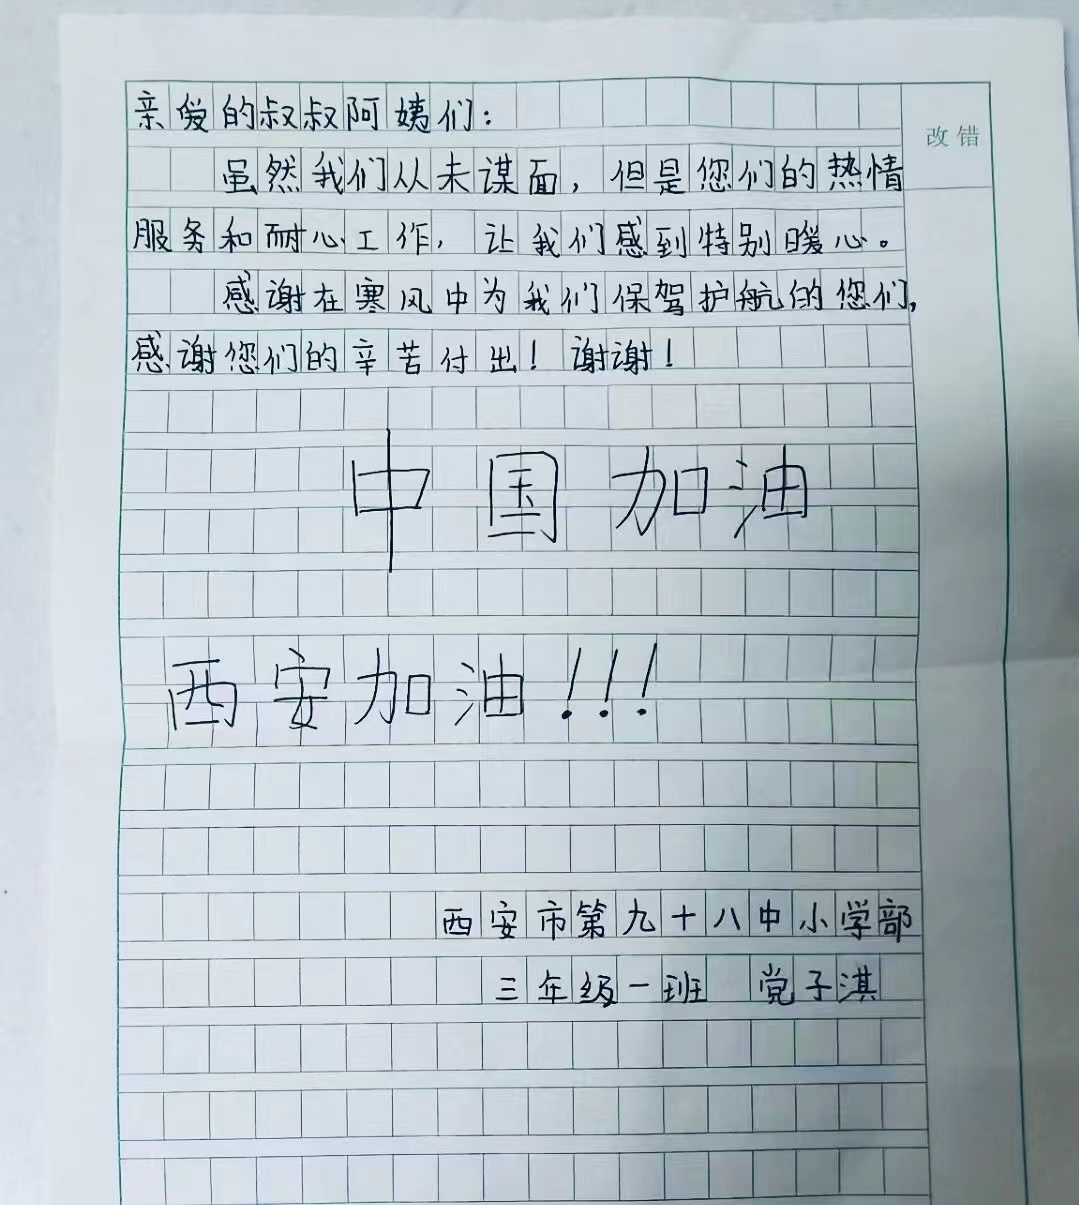 亲爱的叔叔阿姨们：
改错
虽然我们从未谋面，但是您们的热情
服务和耐心工作，让我们感到特别暖心。
感谢在寒风中为我们保驾护航的您们，
感谢您们的辛苦付出！谢谢！
中国加油
西安加油！！！
西安市第九十八中小学部
三年级一班 党子淇